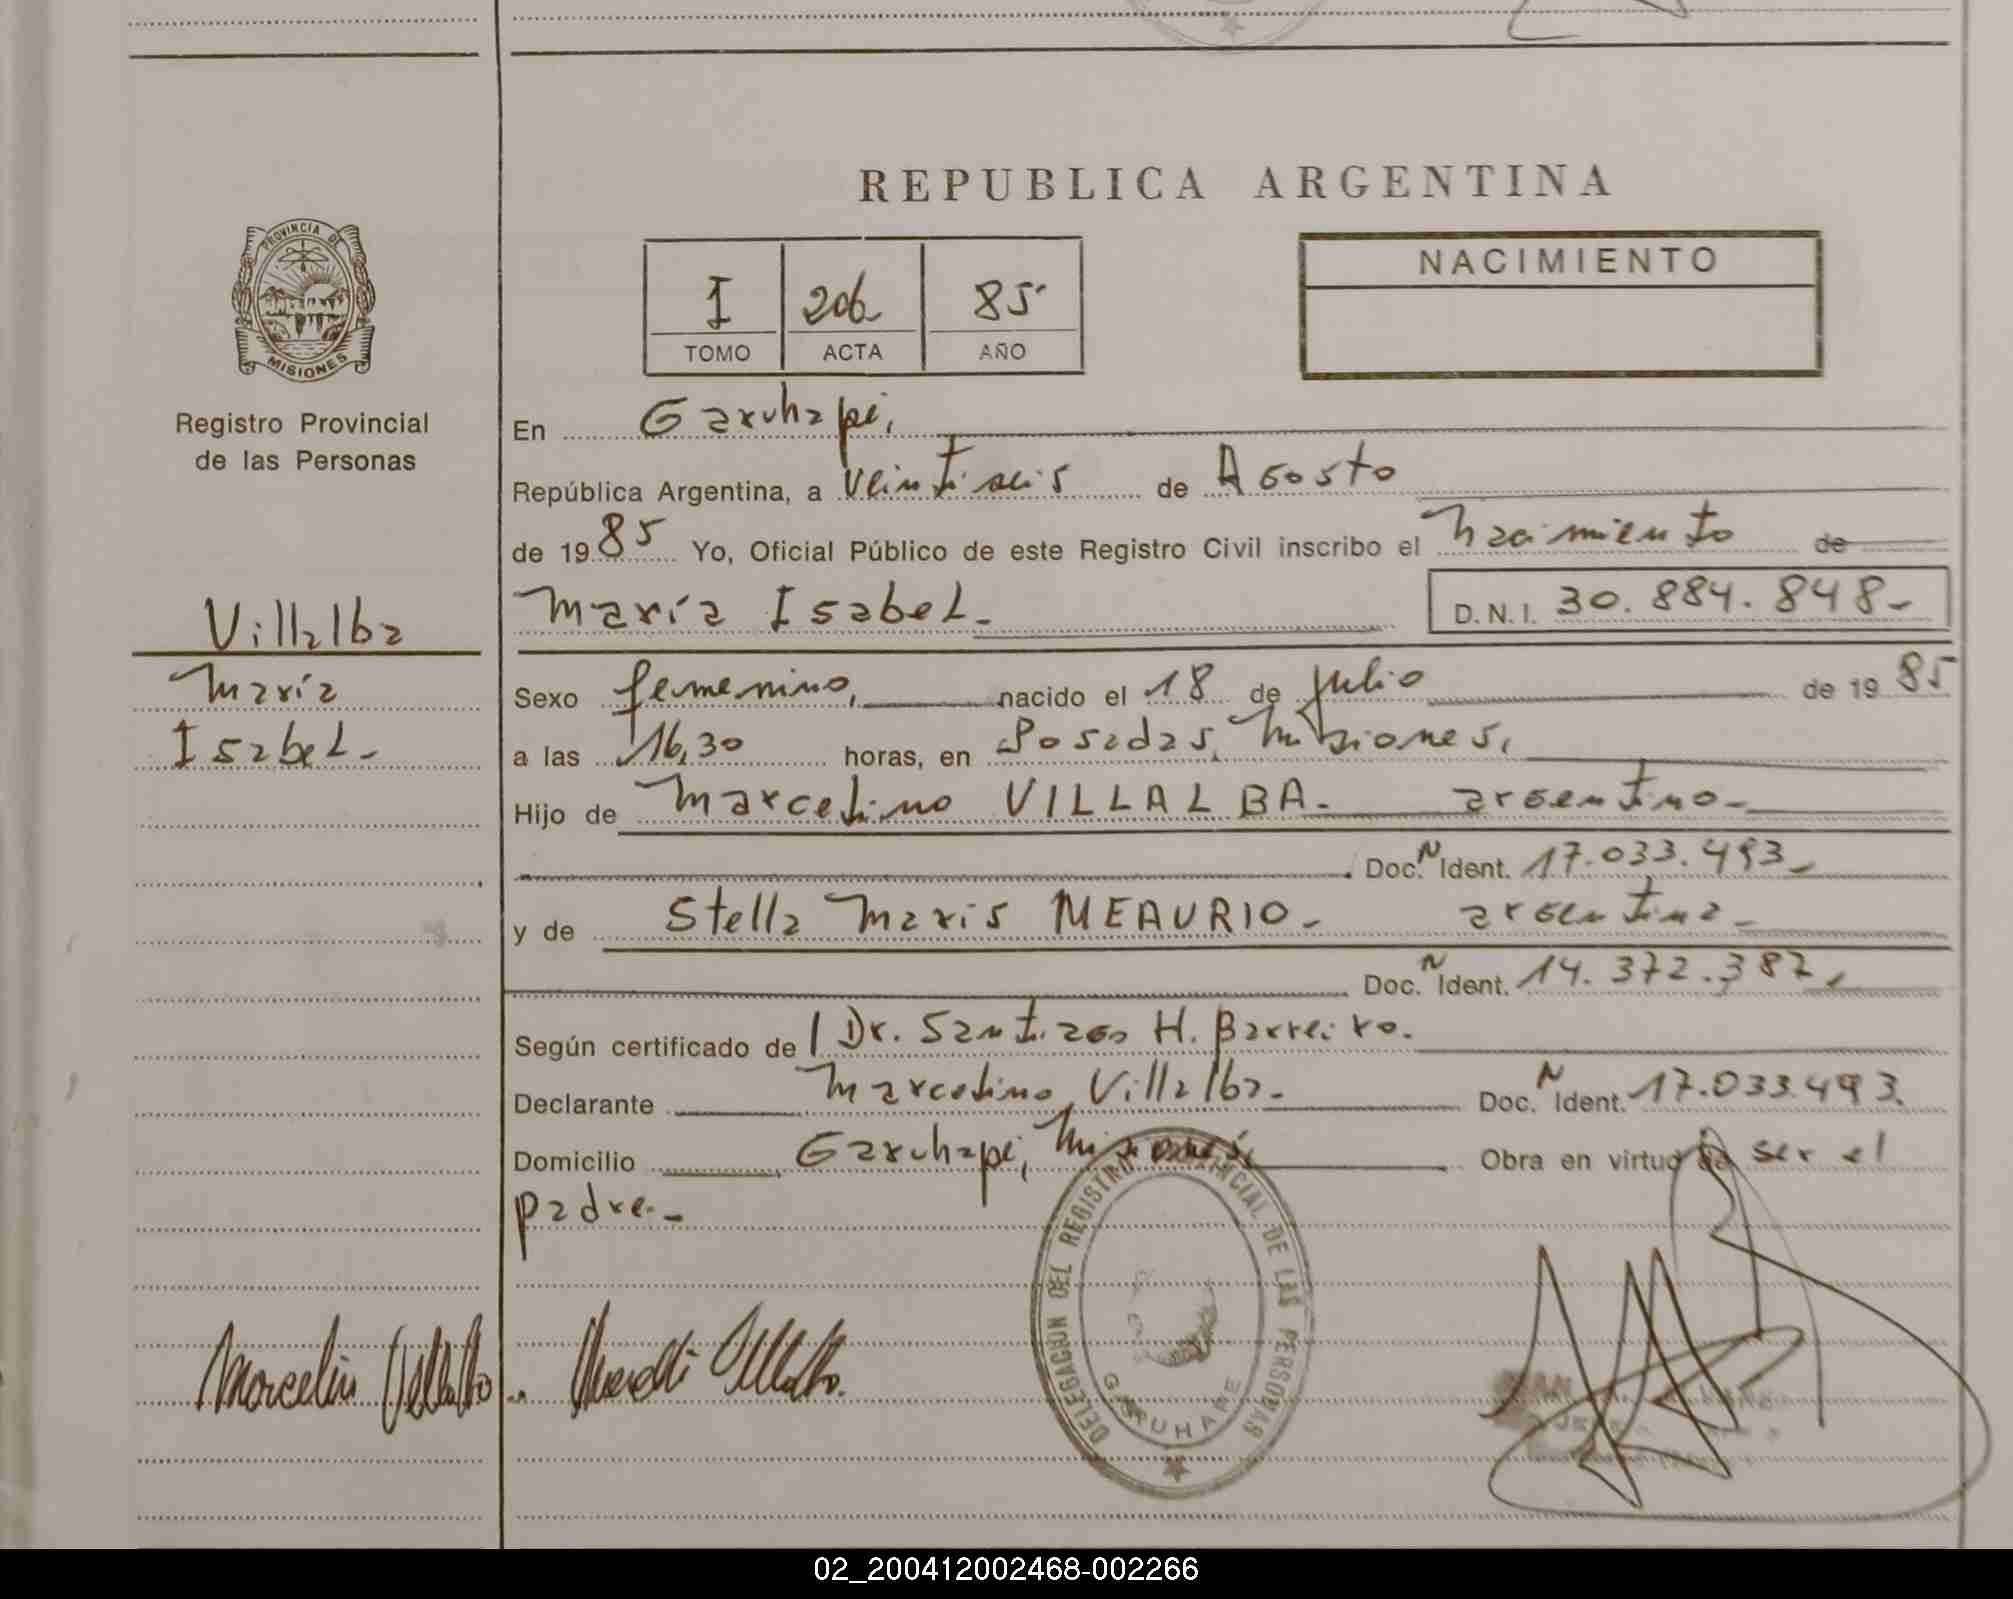 REPUBLICA ARGENTINA
PROVINCIA DE
MISIONES
Registro Provincial
de las Personas
I 206 85
TOMO ACTA AÑO
NACIMIENTO
En Garuhapé,
República Argentina, a veintiseis de Agosto
de 1985 Yo, Oficial Público de este Registro Civil inscribo el nacimiento de
María Isabel.- D.N.I. 30.884.848-
Villalba
María
Isabel-
Sexo femenino, nacido el 18 de julio de 1985
a las 16,30 horas, en Posadas, Misiones,
Hijo de Marcelino VILLALBA- argentino-
Doc. N Ident. 17.033.493-
y de Stella Maris MEAURIO- argentina-
Doc. N Ident. 14.372.387,
Según certificado de Dr. Santiago H. Barreiro.
Declarante Marcelino Villalba- Doc. N Ident. 17.033.493.
Domicilio Garuhapé, Misiones, Obra en virtud de ser el
padre.-
Marcelino Villalba
DELEGACION DEL REGISTRO PROVINCIAL DE LAS PERSONAS
GARUHAPE
02_200412002468-002266